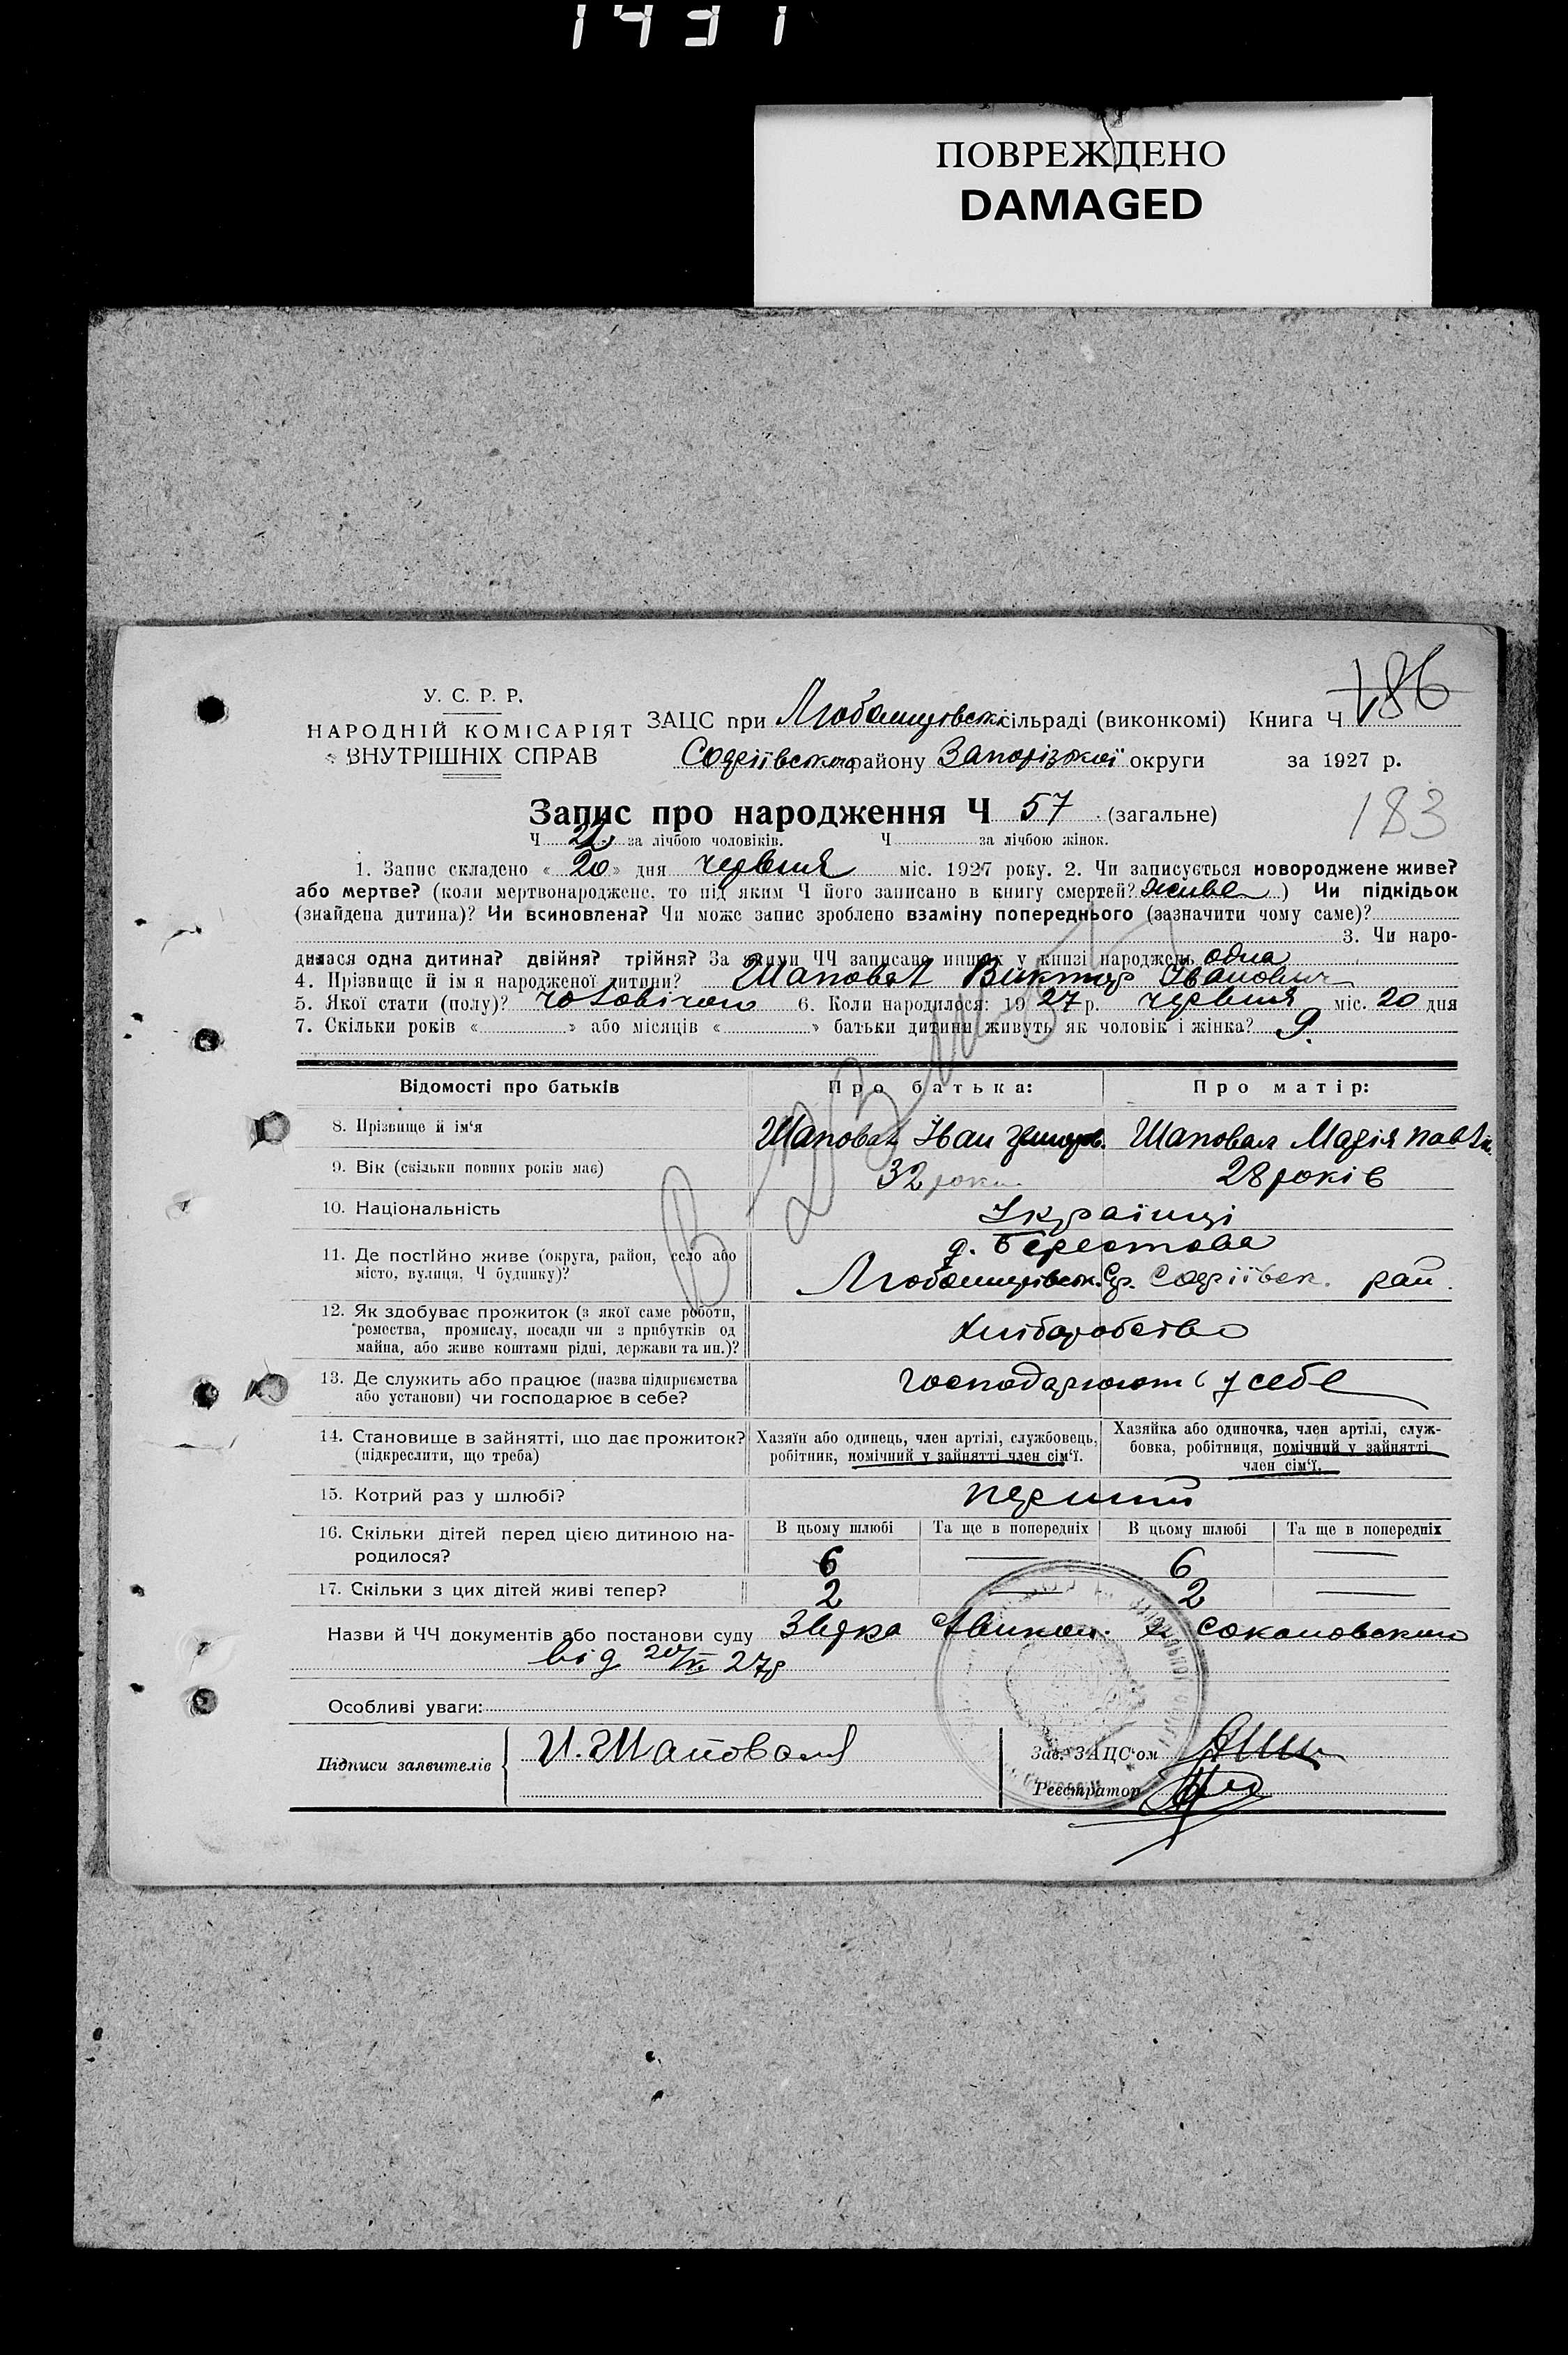 1431
ПОВРЕЖДЕНО
DAMAGED
У. С. Р. Р.
НАРОДНІЙ КОМІСАРІЯТ
ВНУТРІШНІХ СПРАВ
ЗАЦС при Любашувськ сільраді (виконкомі) Книга Ч 186
Софіївськ району Запорізької округи за 1927 р.
183
Запис про народження Ч 57 (загальне)
Ч 22 за лічбою чоловіків. Ч за лічбою жінок.
1. Запис складено « 20 » дня червня міс. 1927 року. 2. Чи записується новороджене живе?
або мертве? (коли мертвонароджене, то під яким Ч його записано в книгу смертей? живе ) Чи підкідьок
(знайдена дитина)? Чи всиновлена? Чи може запис зроблено взаміну попереднього (зазначити чому саме)?
3. Чи наро-
дилася одна дитина? двійня? трійня? За якими ЧЧ записано инших у книзі народжень одна
4. Прізвище й ім я народженої дитини? Шаповал Виктор Іванович
5. Якої стати (полу)? чоловічої 6. Коли народилося: 1927 р. червня міс. 20 дня
7. Скільки років « » або місяців « » батьки дитини живуть як чоловік і жінка? 9.
Відомості про батьків
Про батька:
Про матір:
8. Прізвище й ім‘я
Шаповал Іван
Шаповал Марія Павл
9. Вік (скільки повних років має)
32 роки
28 років
10. Національність
Українці
11. Де постійно живе (округа, район, село або
місто, вулиця, Ч будинку)?
д. Берестова
Любашувськ. Ср. Софіївськ. рай.
12. Як здобуває прожиток (з якої саме роботи,
ремества, промислу, посади чи з прибутків од
майна, або живе коштами рідні, держави та ин.)?
хліборобство
13. Де служить або працює (назва підприємства
або установи) чи господарює в себе?
господарюють у себе
14. Становище в зайнятті, що дає прожиток?
(підкреслити, що треба)
Хазяїн або одинець, член артілі, службовець,
робітник, помічний у зайнятті член сім‘ї.
Хазяйка або одиночка, член артілі, служ-
бовка, робітниця, помічний у зайнятті
член сім‘ї.
15. Котрий раз у шлюбі?
перший
16. Скільки дітей перед цією дитиною на-
родилося?
В цьому шлюбі
Та ще в попередніх
В цьому шлюбі
Та ще в попередніх
6 — 6 —
17. Скільки з цих дітей живі тепер?
2 — 2 —
Назви й ЧЧ документів або постанови суду
від 20/VI 27р
Особливі уваги:
Підписи заявителів
И. Шаповал
Зав. ЗАЦС‘ом
Реєстратор